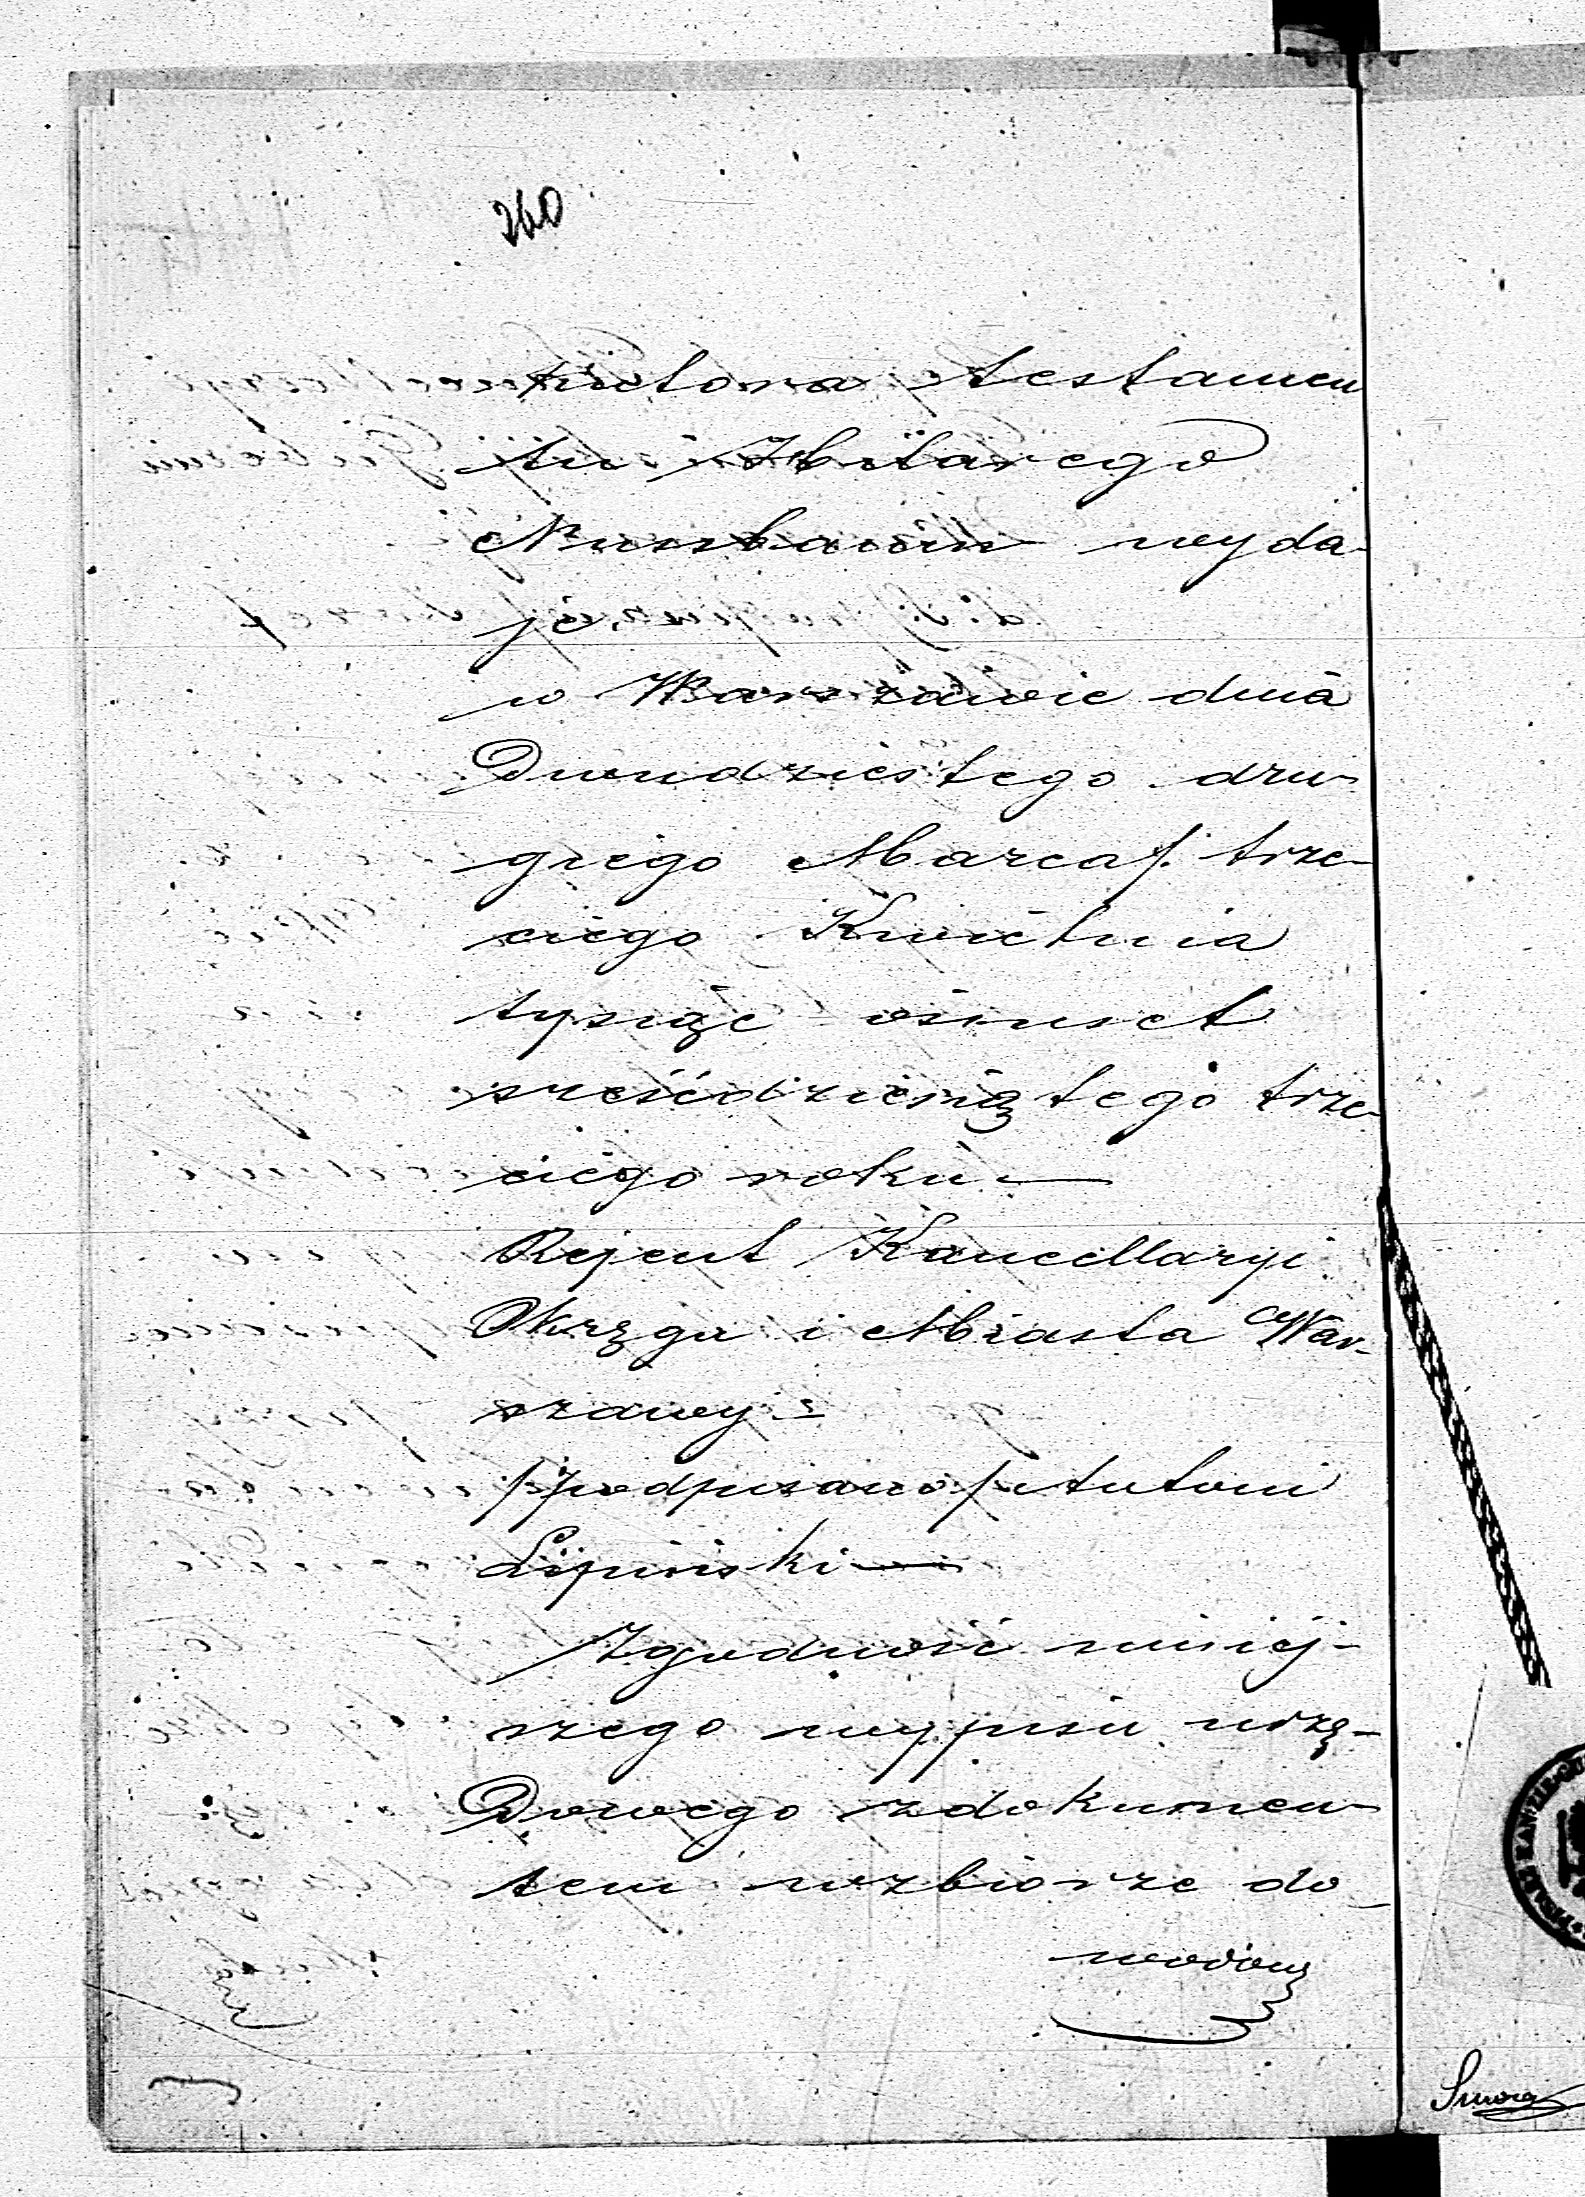 260
kutora testamen
tu Hilarego
Nussbaum wyda
ję.
w Warszawie dnia
Dwudziestego dru-
giego Marca /: trze-
ciego Kwietnia
tysiąc ośmset
sześćdziesiątego trze-
ciego roku —
Rejent Kancellaryi
Okręgu i Miasta War-
szawy —
/podpisano/ Antoni
Lipiński —
Zgodność niniej-
szego wypisu urzę-
Dowego z dokumen-
tem w zbiorze do
wodów